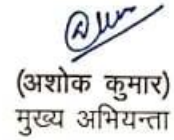 (अशोक कुमार)
मुख्य अभियन्ता